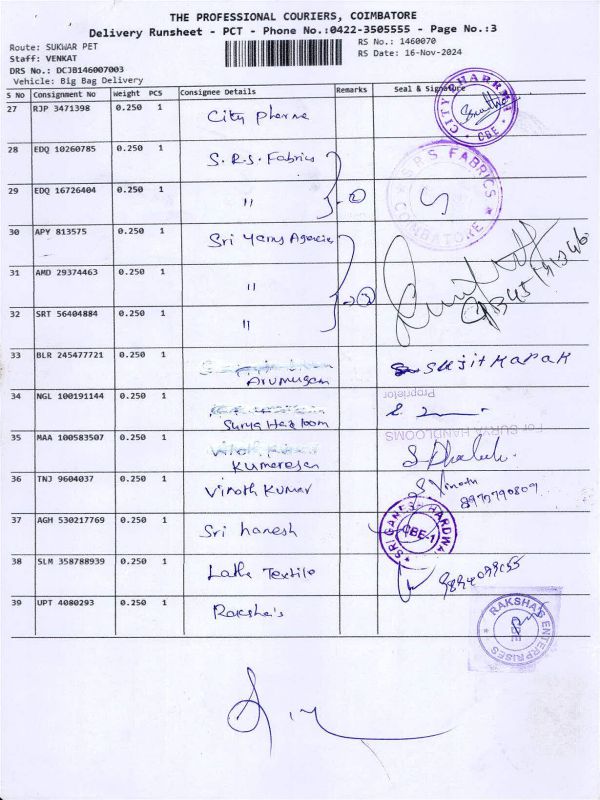 THE PROFESSIONAL COURIERS, COIMBATORE
Delivery Runsheet - PCT - Phone No.:0422-3505555 - Page No.:3
Route: SUKWAR PET
RS No.: 1460070
Staff: VENKAT
RS Date: 16-Nov-2024
DRS No.: DCJB146007003
Vehicle: Big Bag Delivery
S No Consignment No Weight PCS Consignee Details Remarks Seal & Signature
27 RJP 3471398 0.250 1 City Pharma
CITY PHARMA CBE
28 EDQ 10260785 0.250 1 S.R.S. Fabrics
SRS FABRICS COIMBATORE
29 EDQ 16726404 0.250 1 " 2
30 APY 813575 0.250 1 Sri Yarns Agencies
31 AMD 29374463 0.250 1 "
32 SRT 56404884 0.250 1 " 3
33 BLR 245477721 0.250 1 Arumugam SUJIT MAPAR
34 NGL 100191144 0.250 1 Surya Handloom
Proprietor
For SURYA HANDLOOMS
35 MAA 100583507 0.250 1 Kumaresan
36 TNJ 9604037 0.250 1 Vinoth Kumar S Vinoth
37 AGH 530217769 0.250 1 Sri Ganesh
SRI GANESH HARDWARE CBE-1
38 SLM 358788939 0.250 1 Latha Textile
39 UPT 4080293 0.250 1 Raksha's
RAKSHA'S ENTERPRISES